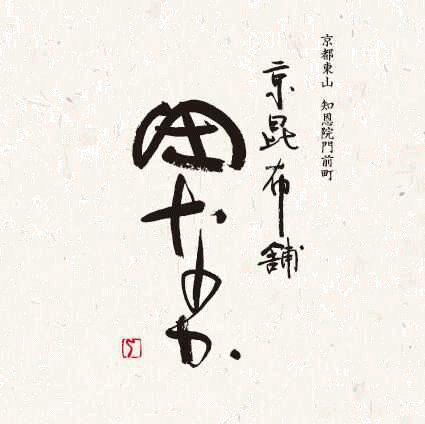 京都東山　知恩院門前町
京昆布舗
田なか